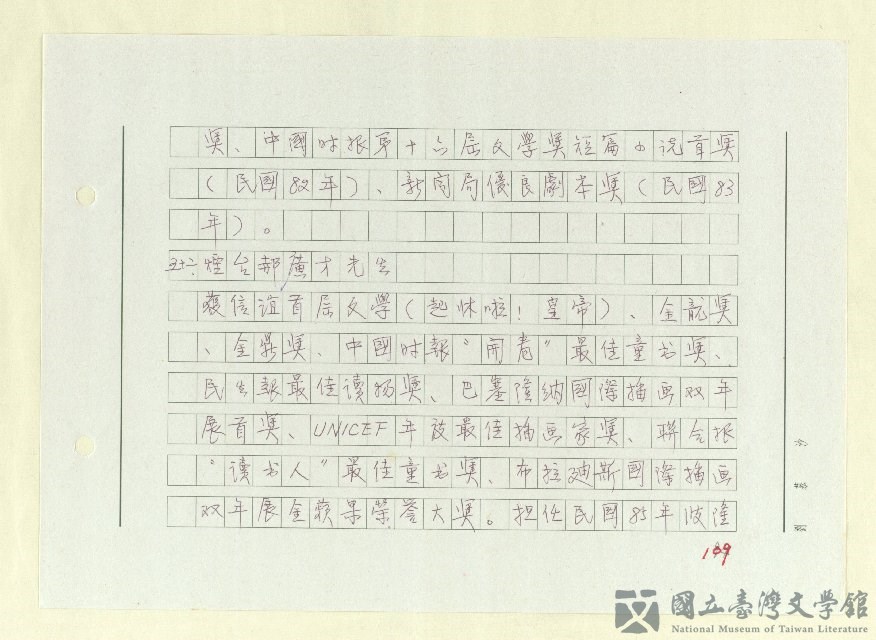 奖、中國时报第十六屆文学奖短篇小说首奖
（民國82年）、新闻局優良劇本奖（民國83
年）。
五十六煙台郝廣才先生
獲信誼首屆文学（起床啦！皇帝）、金龍奖
、金鼎奖、中國时報“開卷”最佳童书奖、
民生報最佳读物奖、巴塞隆纳國際插画双年
展首奖、UNICEF年度最佳插画家奖、聯合报
“读书人”最佳童书奖、布拉迪斯國際插画
双年展金蘋果榮誉大奖。担任民國85年波隆
189
國立臺灣文学館
National Museum of Taiwan Literature